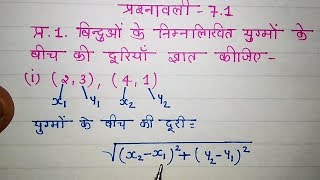 प्रश्नावली - 7.1
प्र.1. बिन्दुओं के निम्नलिखित युग्मों के
बीच की दूरियाँ ज्ञात कीजिए -
(i) (2, 3), (4, 1)
x₁ y₁ x₂ y₂
युग्मों के बीच की दूरी =
√(x₂-x₁)² + (y₂-y₁)²